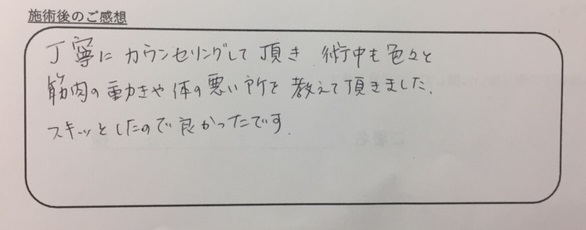 施術後のご感想
丁寧にカウンセリングして頂き 術中も色々と
筋肉の動きや体の悪い所を教えて頂きました。
スキッとしたので良かったです。